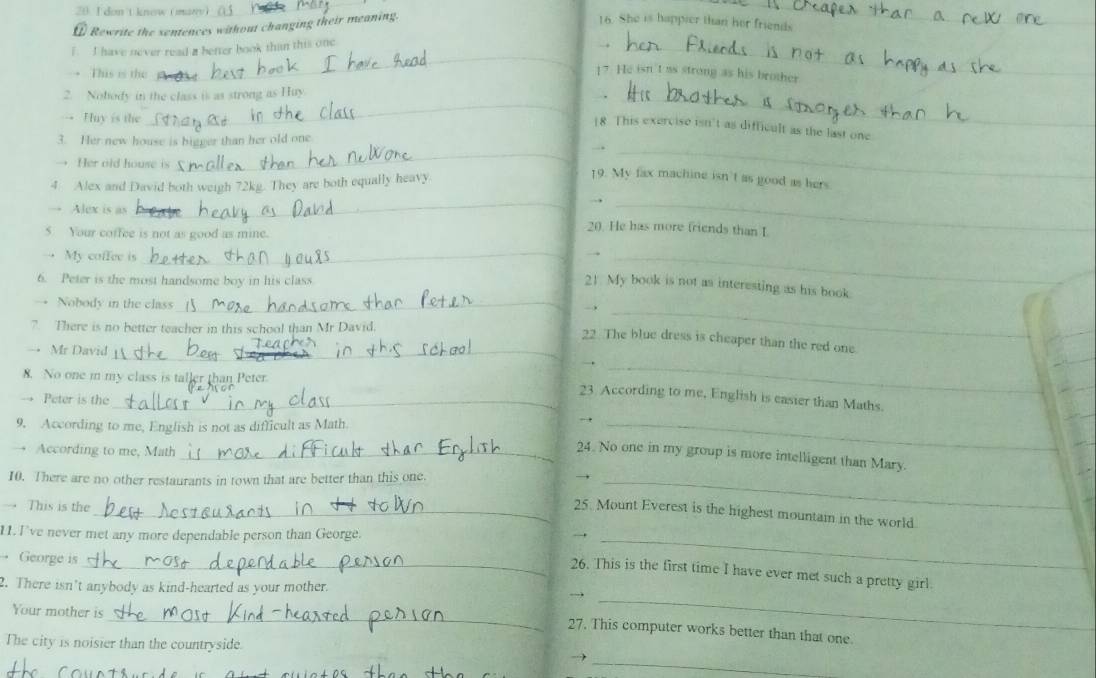 20. I don't know (many) as many
II Rewrite the sentences without changing their meaning.
1. I have never read a better book than this one.
→ This is the best book I have read
2. Nobody in the class is as strong as Huy.
→ Huy is the in the class
3. Her new house is bigger than her old one.
→ Her old house is smaller than her new one
4. Alex and David both weigh 72kg. They are both equally heavy.
→ Alex is as heavy as David
5. Your coffee is not as good as mine.
→ My coffee is better than yours
6. Peter is the most handsome boy in his class
→ Nobody in the class is more handsome than Peter
7. There is no better teacher in this school than Mr David.
→ Mr David is the best teacher in this school
8. No one in my class is taller than Peter.
→ Peter is the tallest person in my class
9. According to me, English is not as difficult as Math.
→ According to me, Math is more difficult than English
10. There are no other restaurants in town that are better than this one.
→ This is the best restaurants in town
11. I've never met any more dependable person than George.
→ George is the most dependable person
2. There isn't anybody as kind-hearted as your mother.
Your mother is the most kind-hearted person
The city is noisier than the countryside.
the
is cheaper than a new one
16. She is happier than her friends
→ her friends is not as happy as she
17. He isn't as strong as his brother
→ His brother is stronger than he
18. This exercise isn't as difficult as the last one
→
19. My fax machine isn't as good as hers
→
20. He has more friends than I.
→
21. My book is not as interesting as his book.
→
22. The blue dress is cheaper than the red one.
→
23. According to me, English is easier than Maths.
→
24. No one in my group is more intelligent than Mary.
→
25. Mount Everest is the highest mountain in the world
→
26. This is the first time I have ever met such a pretty girl.
→
27. This computer works better than that one.
→